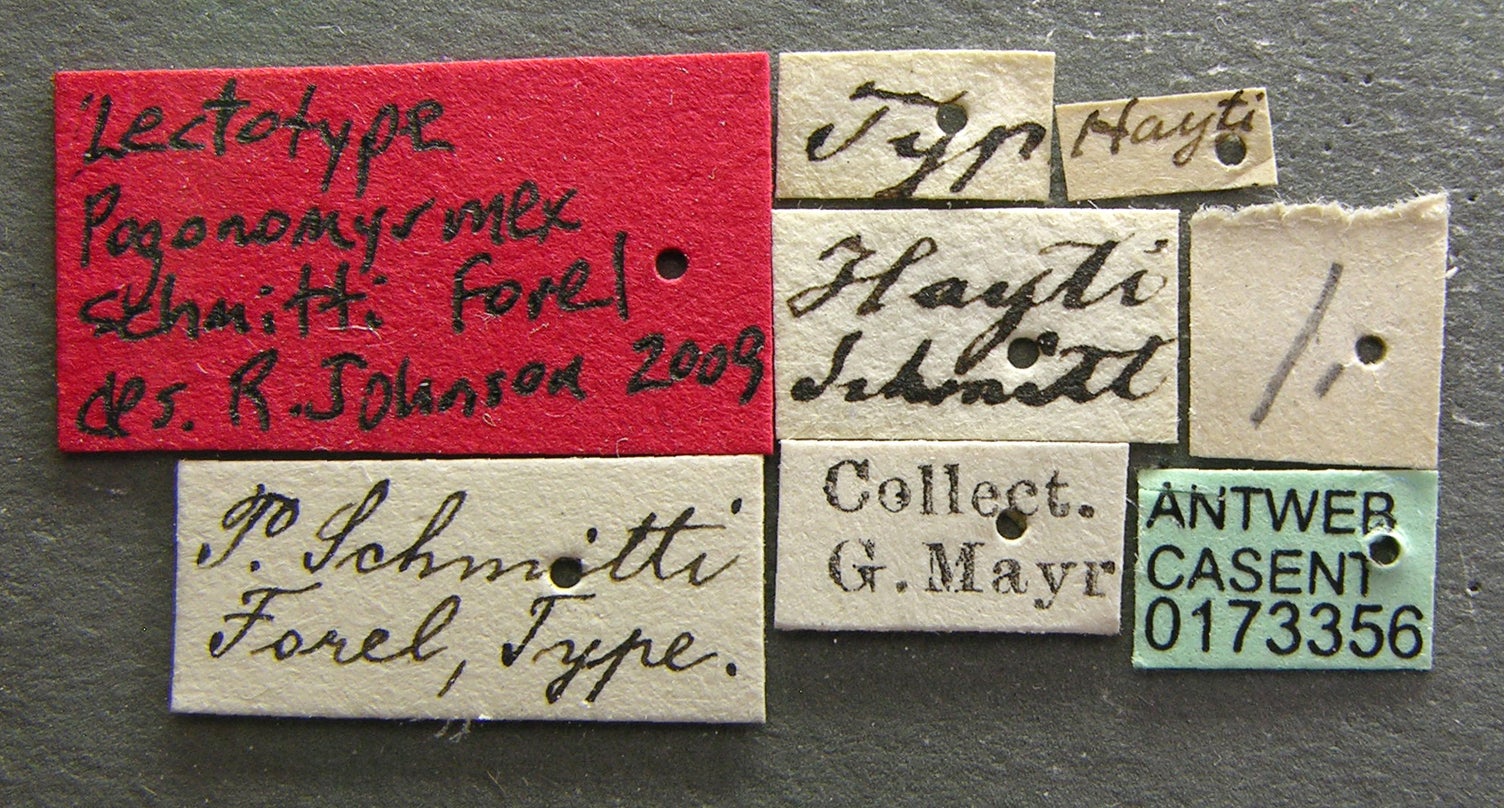 Lectotype
Pogonomyrmex
schmitti Forel
des. R. Johnson 2009
Typ.
Hayti
Hayti
Schmitt
P. Schmitti
Forel, Type.
Collect.
G. Mayr
ANTWEB
CASENT
0173356